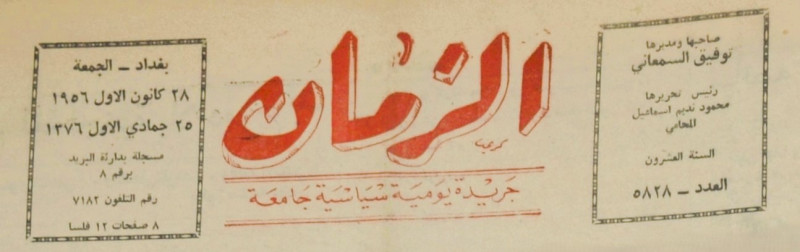 صاحبها ومديرها
توفيق السمعاني
رئيس تحريرها
محمود نديم اسماعيل
المحامي
السنة العشرون
العدد ــ ٥٨٢٨
الزمان
كريم
جريدة يومية سياسية جامعة
بغداد ــ الجمعة
٢٨ كانون الاول ١٩٥٦
٢٥ جمادي الاول ١٣٧٦
مسجلة بدائرة البريد
برقم ٨
رقم التلفون ٧١٨٢
٨ صفحات ١٢ فلسا